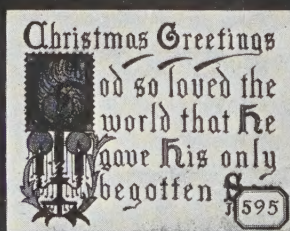 Christmas Greetings
God so loved the
world that He
gave His only
begotten S
595